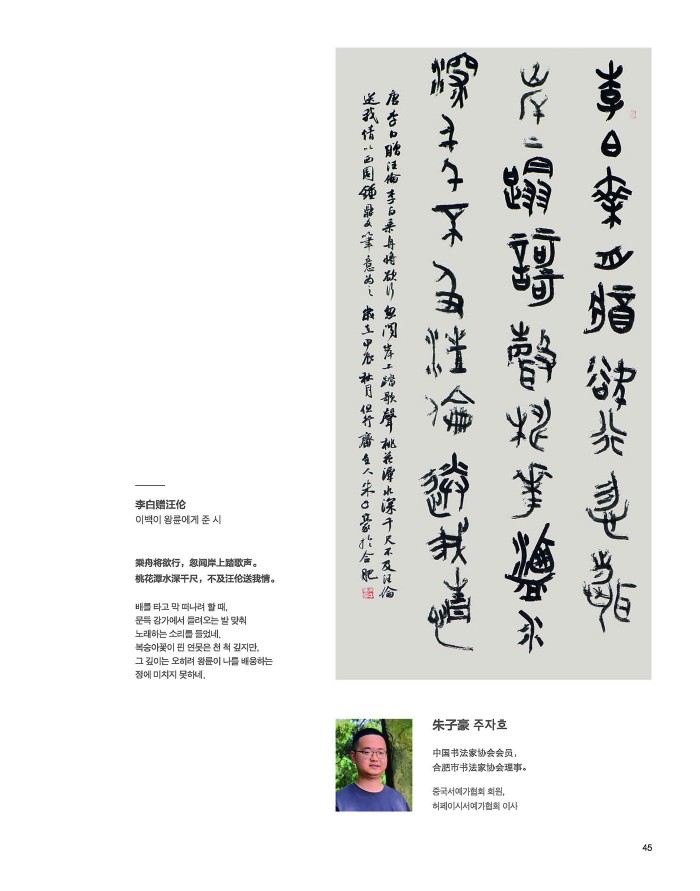 李白乘舟將欲行忽聞
岸上踏歌聲桃華潭水
深千尺不及汪倫送我情
唐李白贈汪倫李白乘舟將欲行忽聞岸上踏歌聲桃花潭水深千尺不及汪倫
送我情以西周鐘鼎文筆意為之歲在甲辰秋月但行齋主人朱子豪於合肥
李白赠汪伦
이백이 왕륜에게 준 시
乘舟将欲行，忽闻岸上踏歌声。
桃花潭水深千尺，不及汪伦送我情。
배를 타고 막 떠나려 할 때,
문득 강가에서 들려오는 발 맞춰
노래하는 소리를 들었네.
복숭아꽃이 핀 연못은 천 척 깊지만,
그 깊이는 오히려 왕륜이 나를 배웅하는
정에 미치지 못하네.
朱子豪 주자호
中国书法家协会会员，
合肥市书法家协会理事。
중국서예가협회 회원,
허페이시서예가협회 이사
45